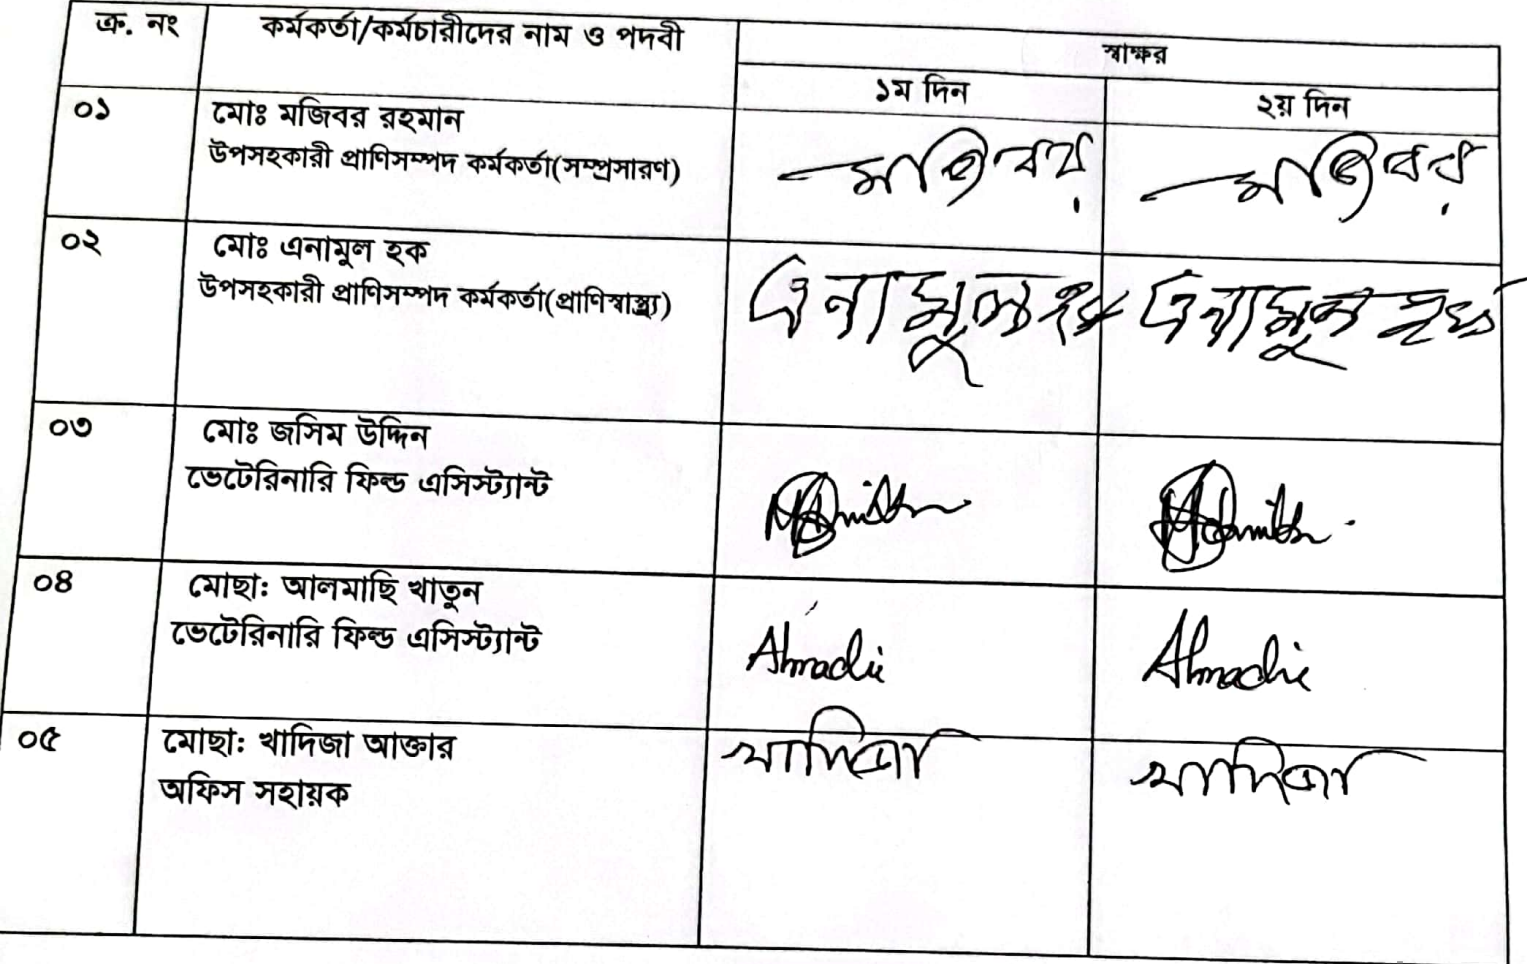 ক্র. নং কর্মকর্তা/কর্মচারীদের নাম ও পদবী স্বাক্ষর
১ম দিন ২য় দিন
০১ মোঃ মজিবর রহমান
উপসহকারী প্রাণিসম্পদ কর্মকর্তা(সম্প্রসারণ) মজিবর মজিবর
০২ মোঃ এনামুল হক
উপসহকারী প্রাণিসম্পদ কর্মকর্তা(প্রাণিস্বাস্থ্য) এনামুল হক এনামুল হক
০৩ মোঃ জসিম উদ্দিন
ভেটেরিনারি ফিল্ড এসিস্ট্যান্ট
০৪ মোছা: আলমাছি খাতুন
ভেটেরিনারি ফিল্ড এসিস্ট্যান্ট
০৫ মোছা: খাদিজা আক্তার খাদিজা খাদিজা
অফিস সহায়ক